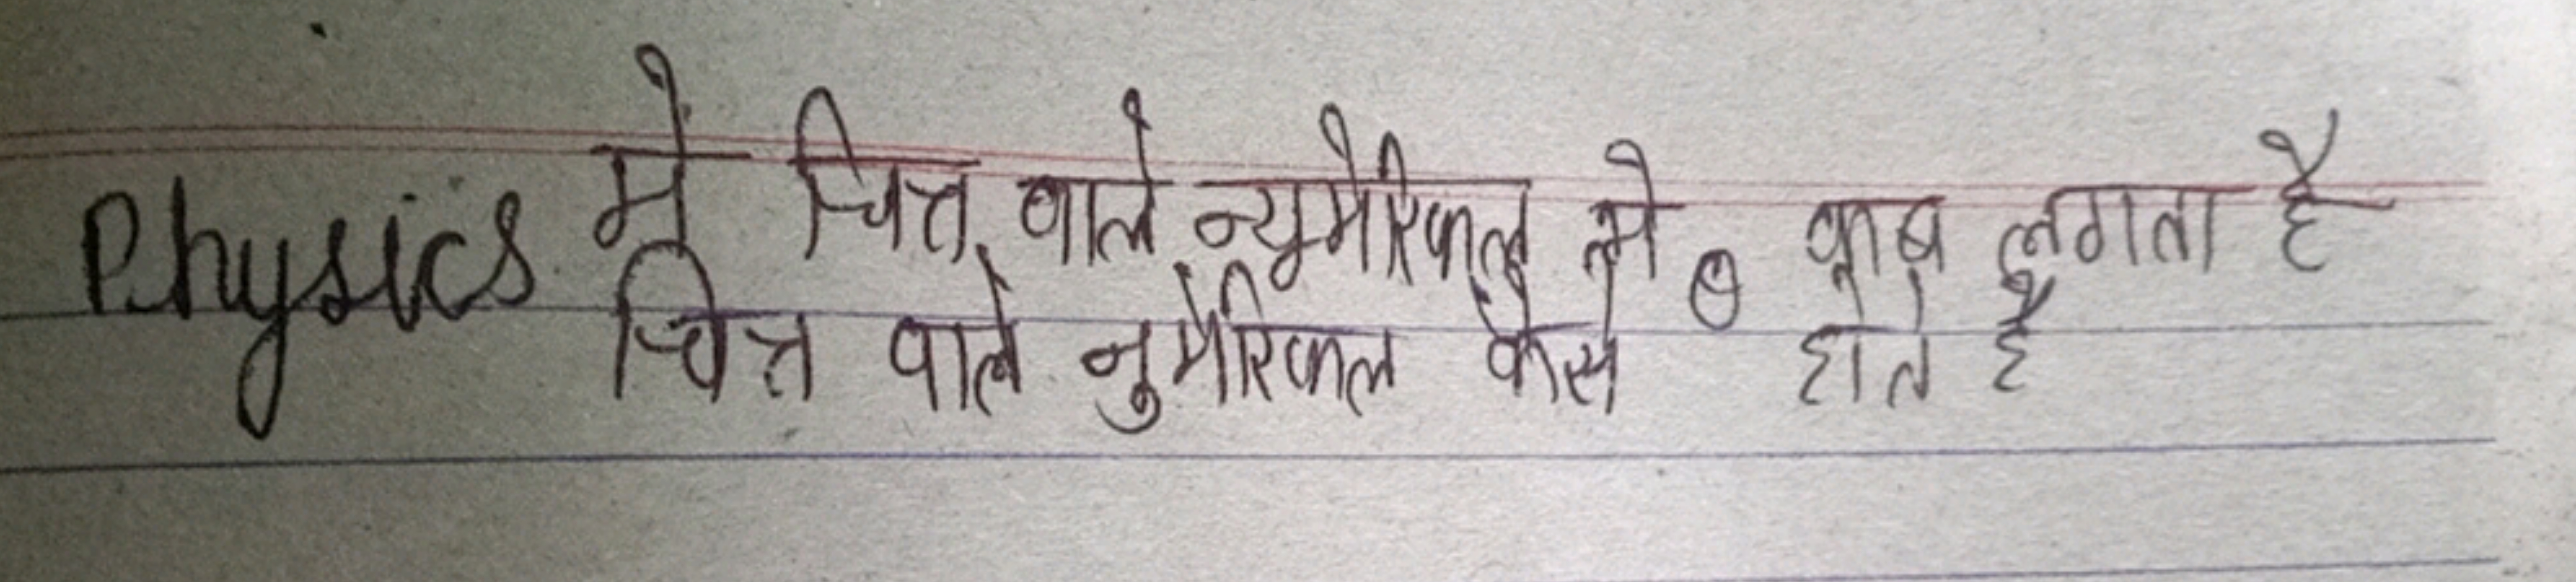 Physics में चित्र वाले न्यूमैरिकल मे θ कब लगता है
चित्र वाले नुमैरिकल कैसे होते है